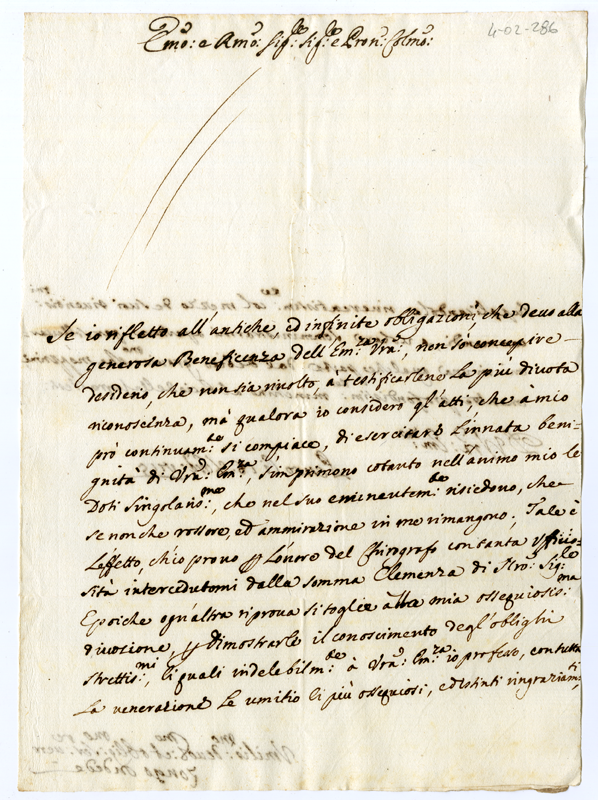 4-02-286
Em̃o: e Rm̃o: Sig:re Sig:re e Pron: Colmo:
Se io rifletto all'antiche, ed infinite obligazioni, che devo alla
generosa Beneficenza dell'Em:za Vrã:, non so concepire
desiderio, che non sia rivolto, à testificarlene La più divota
riconoscenza, mà qualora io considero gl'atti, che à mio
prò continuam:te si compiace, di esercitare L'innata beni-
gnità di Vrã: Em:za, s'imprimono cotanto nell'animo mio le
Doti Singolariss:me, che nel suo eminentem:te risiedono, che
se non che rossore, ed ammirazione in me rimangono; Tale è
L'effetto, ch'io provo p L'onore del Chirografo con tanta ufficio=
sità intercedutomi dalla somma Clemenza di Nrõ: Sig:re
E poiche ogn'altra riprova si toglie alla mia ossequiosis:ma
divozione, p dimostrarle il conoscimento degl'oblighi
strettis:mi, li quali indelebilm:te à Vrã: Em:za io professo, con tutta
La venerazione Le umilio li più ossequiosi, e distinti ringraziam:ti,